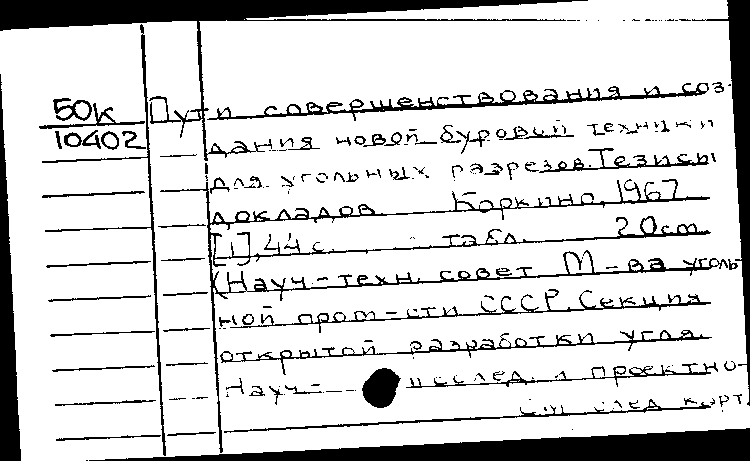 50к
10402
Пути совершенствования и соз-
дания новой буровой техники
для угольных разрезов. Тезисы
докладов. Коркино, 1967.
[1], 44 с. табл. 20см.
(Науч-техн. совет М-ва уголь-
ной пром-сти СССР. Секция
открытой разработки угля.
Науч- исслед. и проектно-
см след карт.